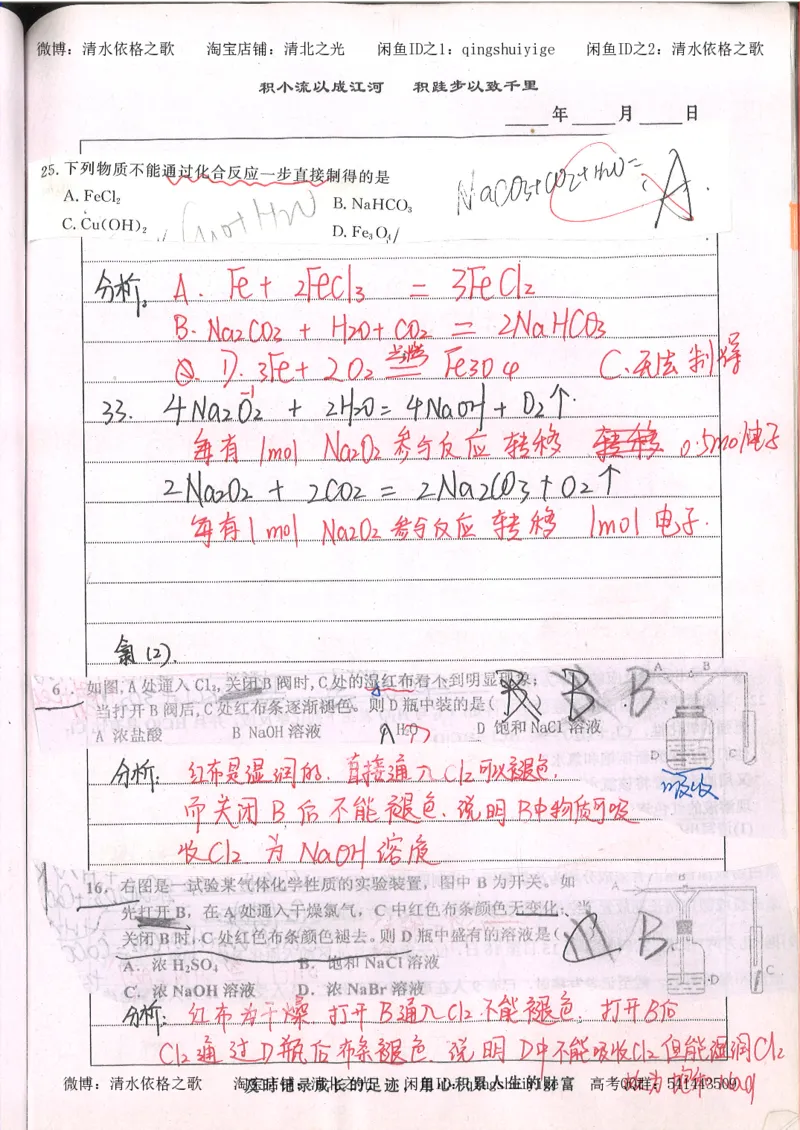 微博：清水依格之歌　淘宝店铺：清北之光　闲鱼ID之1：qingshuiyige　闲鱼ID之2：清水依格之歌
积小流以成江河　积跬步以致千里
年　月　日
25.下列物质不能通过化合反应一步直接制得的是
A.FeCl₂　B.NaHCO₃
C.Cu(OH)₂　D.Fe₃O₄
NaCO₃+CO₂+H₂O=　A.
分析：A. Fe + 2FeCl₃ = 3FeCl₂
B. Na₂CO₃ + H₂O + CO₂ = 2NaHCO₃
D. 3Fe + 2O₂ 点燃 = Fe₃O₄　C.无法制得
33. 4Na₂O₂ + 2H₂O = 4NaOH + O₂↑
-1
每有1mol Na₂O₂参与反应 转移 0.5mol电子
2Na₂O₂ + 2CO₂ = 2Na₂CO₃ + O₂↑
每有1mol Na₂O₂参与反应 转移 1mol电子.
氯(2).
6　如图,A处通入Cl₂,关闭B阀时,C处的湿红布看不到明显现象;
当打开B阀后,C处红布条逐渐褪色。则D瓶中装的是(　B B B
A 浓盐酸　B NaOH溶液　H₂O　D 饱和NaCl溶液
A　B
D　C
吸收
分析：红布是湿润的，直接通入Cl₂可以褪色，
而关闭B后不能褪色，说明B中物质可吸
收Cl₂为NaOH溶液
16．右图是一试验某气体化学性质的实验装置，图中B为开关。如
先打开B，在A处通入干燥氯气，C中红色布条颜色无变化、当
关闭B时,C处红色布条颜色褪去。则D瓶中盛有的溶液是(　B
A．浓H₂SO₄　B．饱和NaCl溶液
C．浓NaOH溶液　D．浓NaBr溶液
A　B
D　C
分析：红布为干燥，打开B通入Cl₂不能褪色，打开B后
Cl₂通过D瓶后布条褪色，说明D中不能吸收Cl₂但能湿润Cl₂
微博：清水依格之歌　淘宝店铺：清北之光　闲鱼ID之1：qingshuiyige　高考QQ群：541443509
及时记录成长的足迹，用心积累人生的财富